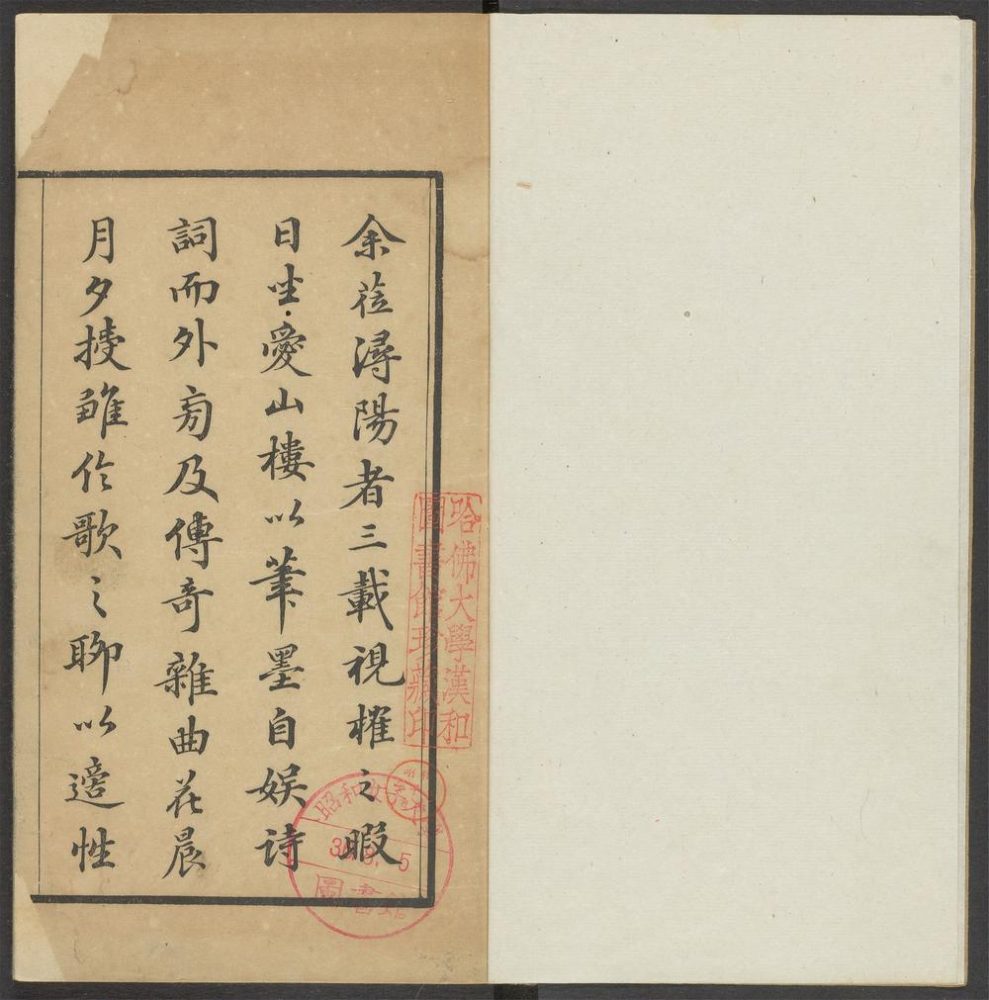 哈佛大學漢和
圖書館珍藏印
余莅潯陽者三載視榷之暇
日坐愛山樓以筆墨自娛詩
詞而外旁及傳奇雜曲花晨
月夕授雛伶歌之聊以適性
昭和
圖書館